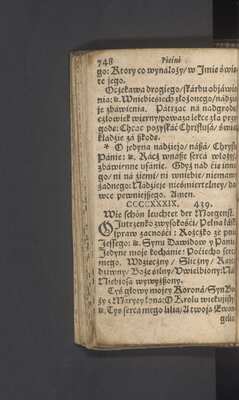 748 Pieśni
go: Ktory co wynalożył w Jmie świę-
te jego.
Oczekawa drogiego skárbu objáwie-
nia: w Wniebiesiech złożonego nádzieje
je zbáwienia. Patrząc na nadgrodę
człowiek wierny poważa lekce zła przy
gode: Chcąc pozyskáć Chrystusá świát
kładzie zá szkodę.
* O jedyna nádziejo nászá Chryste
Panie: Rácz wnásze sercá włożyć
zbáwienne ufánie. Gdyż nád cię inne-
go ni ná ziemi ni wniebie niemamy
żadnego: Nádzieje nieśmiertelney dá-
wce pewniejszego. Amen.
CCCCXXXIX. 439.
Wie schön leuchtet der Morgenst.
O Jutrzenko zwysokości Pełna łáski
spraw zacności: Rożczko ze pniá
Jessego: Synu Dawidow y Panie
Jedyne moje kochánie: Pociecho sercá
mego. Wdzieczny Sliczny
Boże silny Uwielbiony: Ná
Niebiosá wywyższony.
Tyś głowy mojey Koroná Syn Bo-
ży z Maryey łoná: O Krolu wiekuisty:
Tyś serca mego lilia A twojá Ewán-
gelia